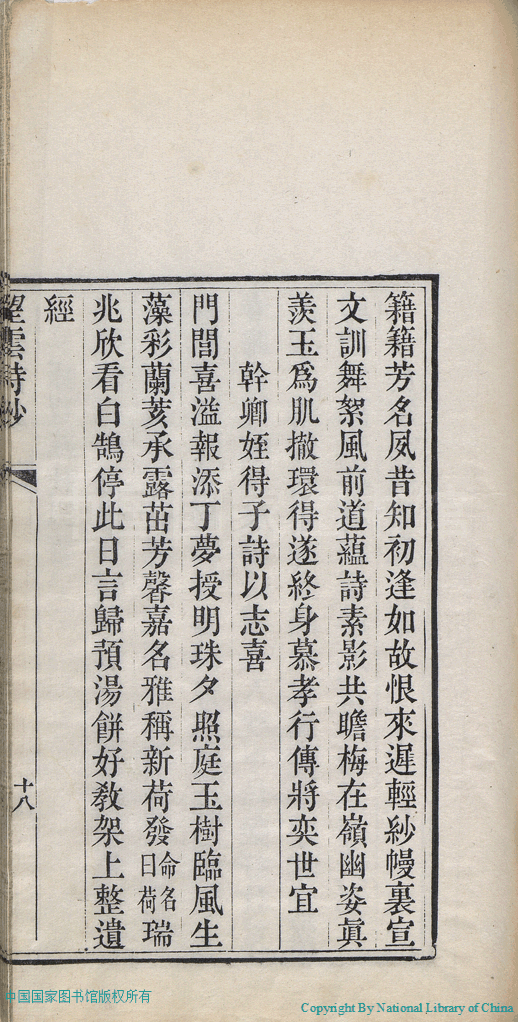 籍籍芳名夙昔知初逢如故恨來遲輕紗幔裏宣
文訓舞絮風前道藴詩素影共瞻梅在嶺幽姿眞
羨玉爲肌撤環得遂終身慕孝行傳將奕世宜
幹卿姪得子詩以志喜
門閭喜溢報添丁夢授明珠夕照庭玉樹臨風生
藻彩蘭荄承露茁芳馨嘉名雅稱新荷發命名曰荷瑞
兆欣看白鵠停此日言歸預湯餅好教架上整遺
經
望雲詩鈔
十八
中国国家图书馆版权所有
Copyright By National Library of China